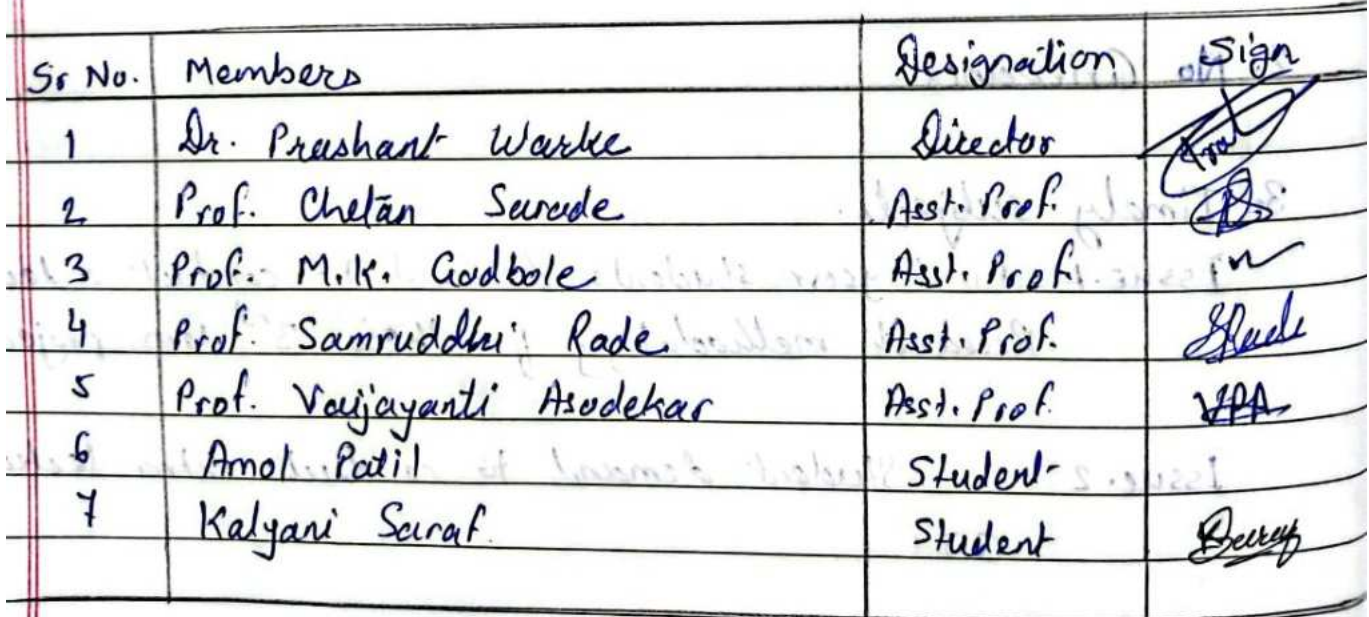 Sr No. Members Designation Sign
1 Dr. Prashant Warke Director
2 Prof. Chetan Sarode Asst. Prof.
3 Prof. M.K. Godbole Asst. Prof.
4 Prof. Samruddhi Rade Asst. Prof.
5 Prof. Vaijayanti Asodekar Asst. Prof. VPA
6 Amol Patil Student
7 Kalyani Saraf Student